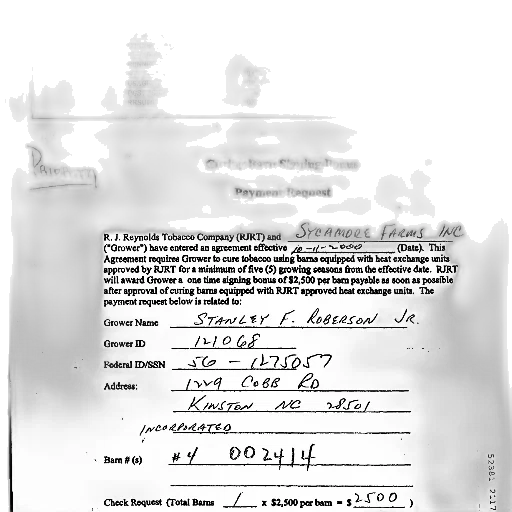 PRIORITY
Curing Barn Signing Bonus
Payment Request
R. J. Reynolds Tobacco Company (RJRT) and SYCAMORE FARMS INC
("Grower") have entered an agreement effective 10-11-2000 (Date). This
Agreement requires Grower to cure tobacco using barns equipped with heat exchange units
approved by RJRT for a minimum of five (5) growing seasons from the effective date. RJRT
will award Grower a one time signing bonus of $2,500 per barn payable as soon as possible
after approval of curing barns equipped with RJRT approved heat exchange units. The
payment request below is related to:
Grower Name STANLEY F. ROBERSON JR.
Grower ID 121068
Federal ID/SSN 56-1275057
Address: 1229 COBB RD
KINSTON NC 28501
INCORPORATED
Barn # (s) #4 002414
Check Request (Total Barns 1 x $2,500 per barn = $ 2500 )
52381 2117